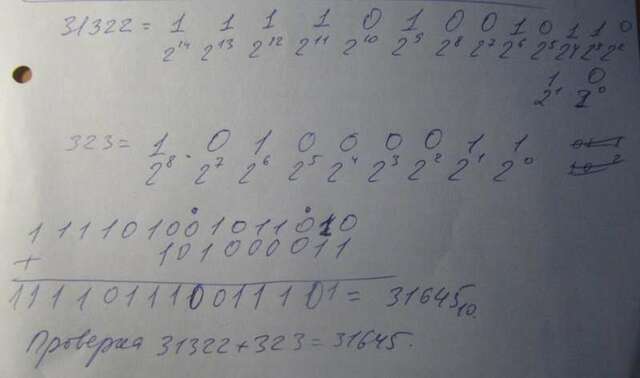 31322 = 1 1 1 1 0 1 0 0 1 0 1 1 0
2^14 2^13 2^12 2^11 2^10 2^9 2^8 2^7 2^6 2^5 2^4 2^3 2^2
1 0
2^1 2^0
323 = 1 0 1 0 0 0 0 1 1
2^8 2^7 2^6 2^5 2^4 2^3 2^2 2^1 2^0
111101001011010
+ 101000011
111101110011101 = 31645₁₀.
Проверка 31322+323=31645.